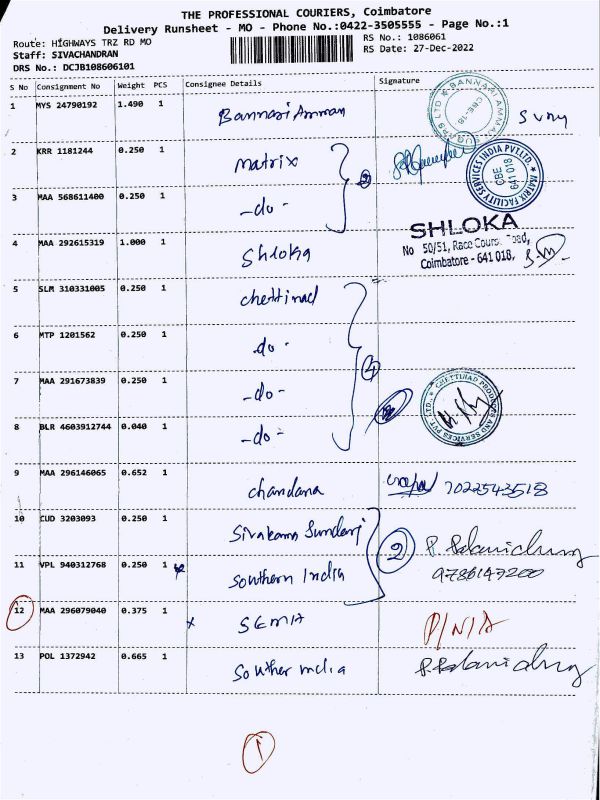 THE PROFESSIONAL COURIERS, Coimbatore
Delivery Runsheet - MO - Phone No.:0422-3505555 - Page No.:1
Route: HIGHWAYS TRZ RD MO
RS No.: 1086061
Staff: SIVACHANDRAN
RS Date: 27-Dec-2022
DRS No.: DCJB108606101
S No Consignment No Weight PCS Consignee Details Signature
1 MYS 24790192 1.490 1 Bannari Amman
2 KRR 1181244 0.250 1 Matrix
MATRIX FACILITY SERVICES INDIA PVT.LTD
CBE 641 018
3 MAA 568611400 0.250 1 -do-
SHLOKA
No 50/51, Race Course Road,
Coimbatore - 641 018.
4 MAA 292615319 1.000 1 Shloka
5 SLM 310331005 0.250 1 chettinad
6 MTP 1201562 0.250 1 -do-
7 MAA 291673839 0.250 1 -do- 4
CHETTINAD PRODUCTS AND SERVICES PVT. LTD.
8 BLR 4603912744 0.040 1 -do-
9 MAA 296146065 0.652 1 chandana 7022543518
10 CUD 3203093 0.250 1 Sivakama Sundari 2
11 VPL 940312768 0.250 1 Southern India 9786149200
12 MAA 296079040 0.375 1 x SEMA P/N/A
13 POL 1372942 0.665 1 Souther india
1